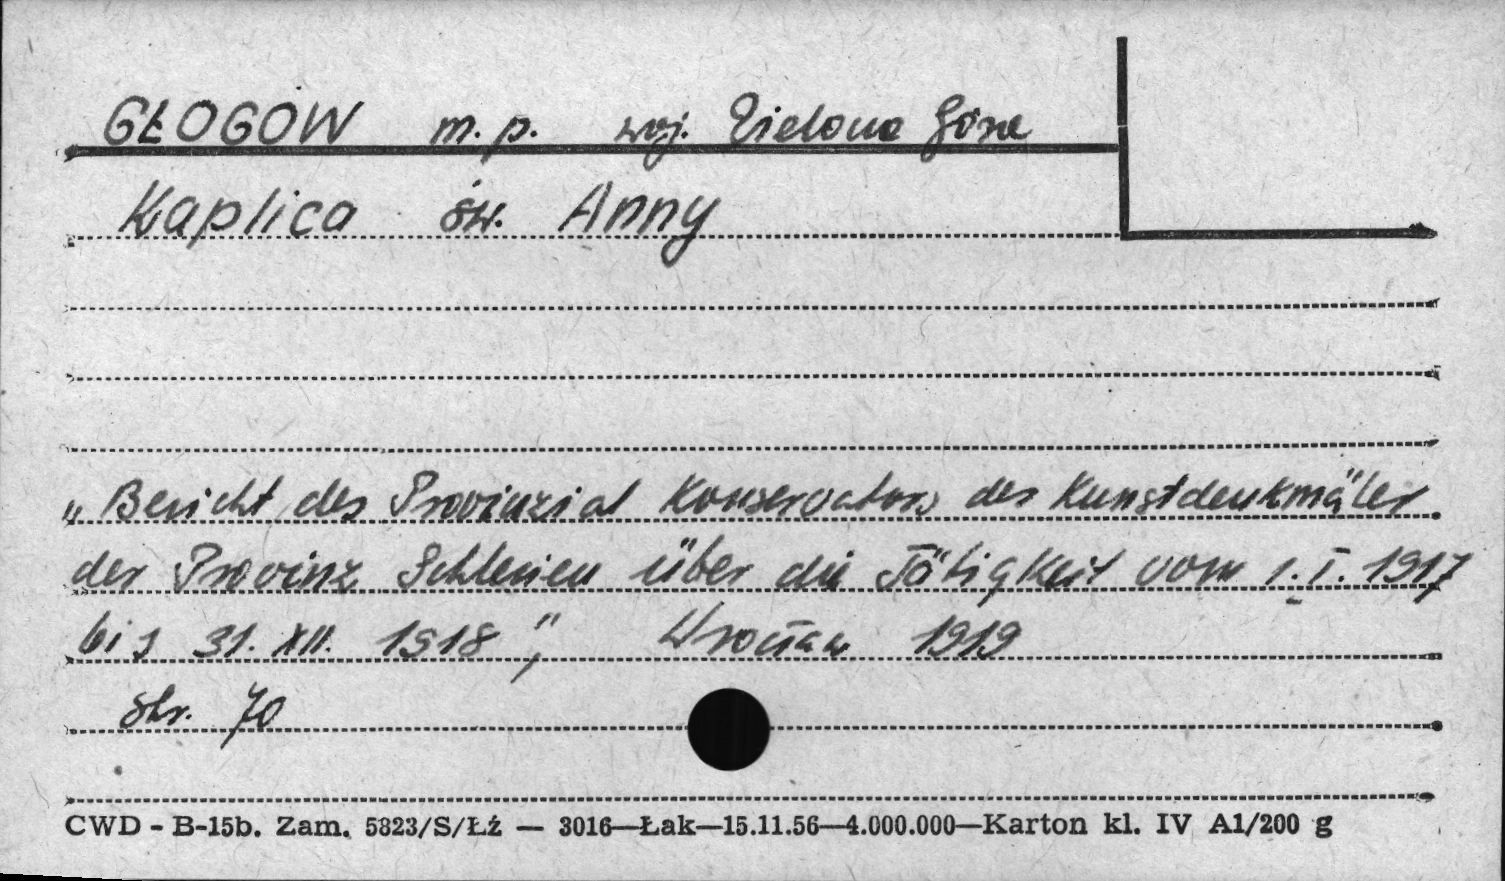 GŁOGÓW m. p. woj. Zielona Góra
Kaplica św. Anny
„Bericht des Provinzial Konservators der Kunstdenkmäler
der Provinz Schlesien über die Tätigkeit vom 1. I. 1917
bis 31. XII. 1918", Wrocław 1919
str. 70
CWD - B-15b. Zam. 5823/S/Łź — 3016—Łak—15.11.56—4.000.000—Karton kl. IV A1/200 g